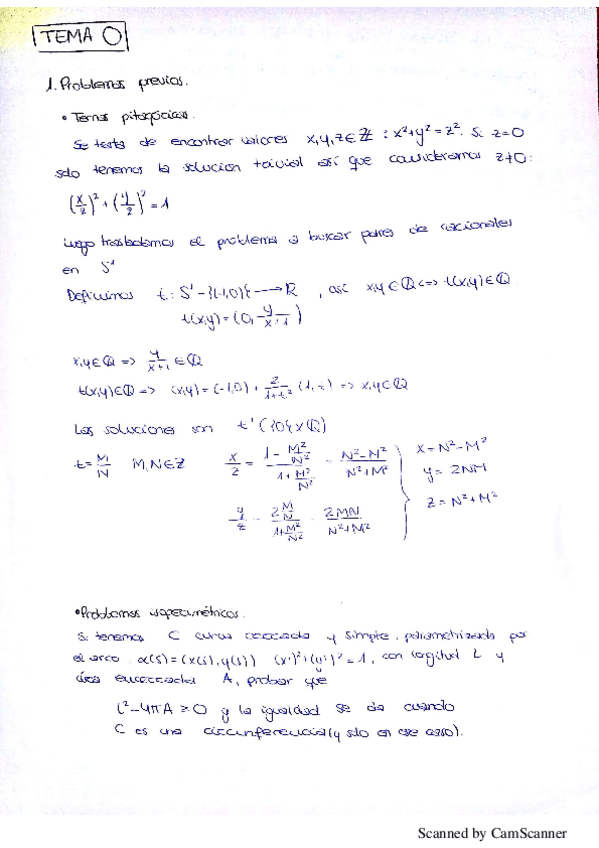 TEMA 0
1. Problemas previos.
• Ternas pitagóricas.
Se trata de encontrar valores x,y,z∈ℤ : x²+y²=z². Si z=0
solo tenemos la solución trivial así que consideramos z≠0:
(x/z)² + (y/z)² = 1
Luego trasladamos el problema a buscar pares de racionales
en S¹
Definimos t: S¹-{(-1,0)} → ℝ, así x,y∈ℚ <=> t(x,y)∈ℚ
t(x,y)=(0, y/(x+1))
x,y∈ℚ => y/(x+1) ∈ℚ
t(x,y)∈ℚ => (x,y)=(-1,0)+ 2/(1+t²) (1,t) => x,y∈ℚ
Las soluciones son t⁻¹({0}xℚ)
t=M/N M,N∈ℤ x/z = (1 - M²/N²)/(1+ M²/N²) = (N²-M²)/(N²+M²)
y/z = (2 M/N)/(1+ M²/N²) = 2MN/(N²+M²)
x=N²-M²
y=2NM
z=N²+M²
• Problemas isoperimétricos.
Si tenemos C curva cerrada y simple, parametrizada por
el arco α(s)=(x(s),y(s)) (x')²+(y')²=1, con longitud L y
área encerrada A, probar que
L²-4πA ≥0 y la igualdad se da cuando
C es una circunferencia (y solo en ese caso).
Scanned by CamScanner